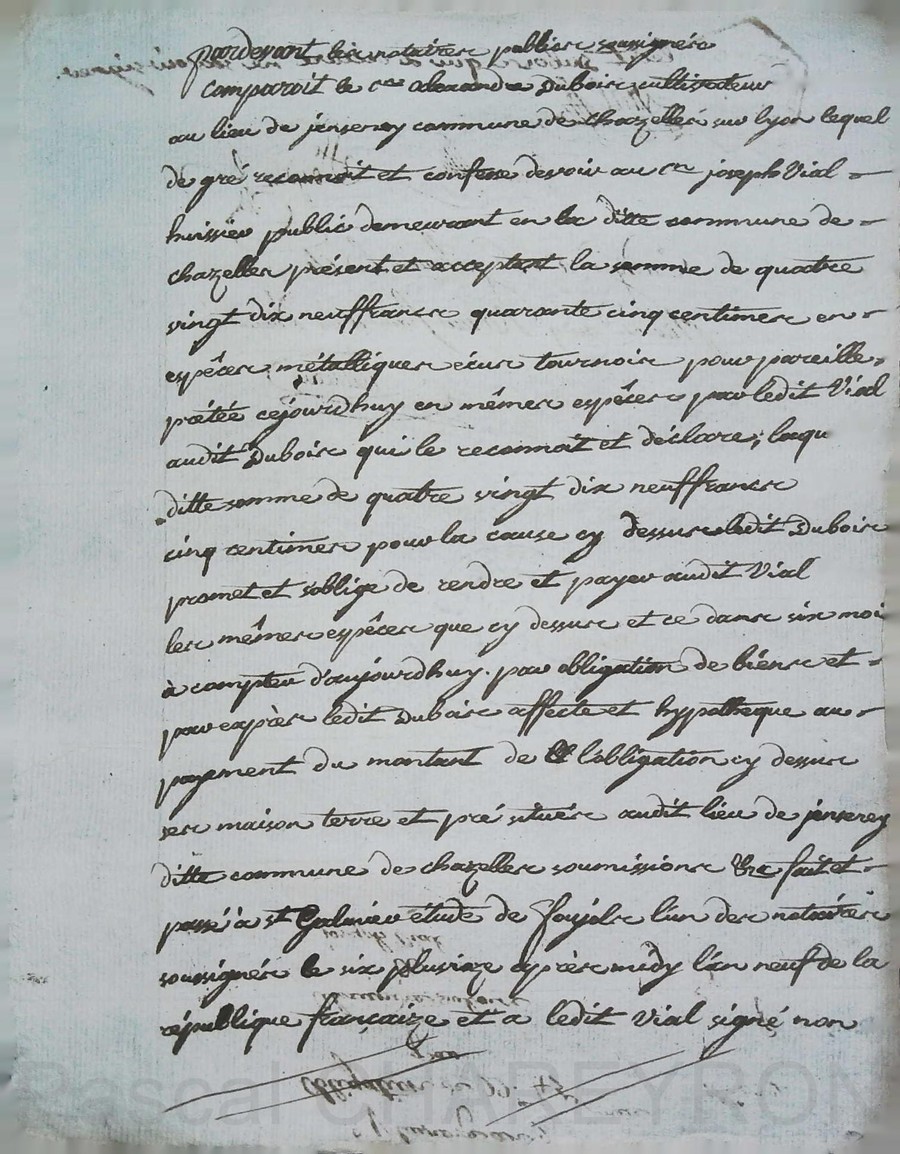 pardevant les notaires publics soussignés
comparoit le cen alexandre Dubois cultivateur
au lieu de jenserey commune de chazelles sur lyon lequel
de gré reconnoit et confesse devoir au cen joseph Vial
huissier public demeurant en la ditte commune de
chazelles présent et acceptant la somme de quatre
vingt dix neuf francs quarante cinq centimes en
espêces métalliques écus tournois pour pareille
prêtée cejourdhuy en mêmes espêces par ledit Vial
audit Dubois qui le reconnait et déclare; laqu
ditte somme de quatre vingt dix neuf francs
cinq centimes pour la cause cy dessus ledit Dubois
promet et s'oblige de rendre et payer audit Vial
les mêmes espêces que cy dessus et ce dans six moi
à compter d'aujourdhuy. par obligation de biens et
par exprès ledit Dubois affecte et hypotheque au
payement du montant de l'obligation cy dessus
ses maison terre et pré situés audit lieu de jenserey
ditte commune de chazelles soumissions &ca fait et
passé à st Galmier étude de l'un des notaires
soussignés le six pluviose après midy l'an neuf de la
république françaize et a ledit Vial signé non
Pascal CHAREYRON